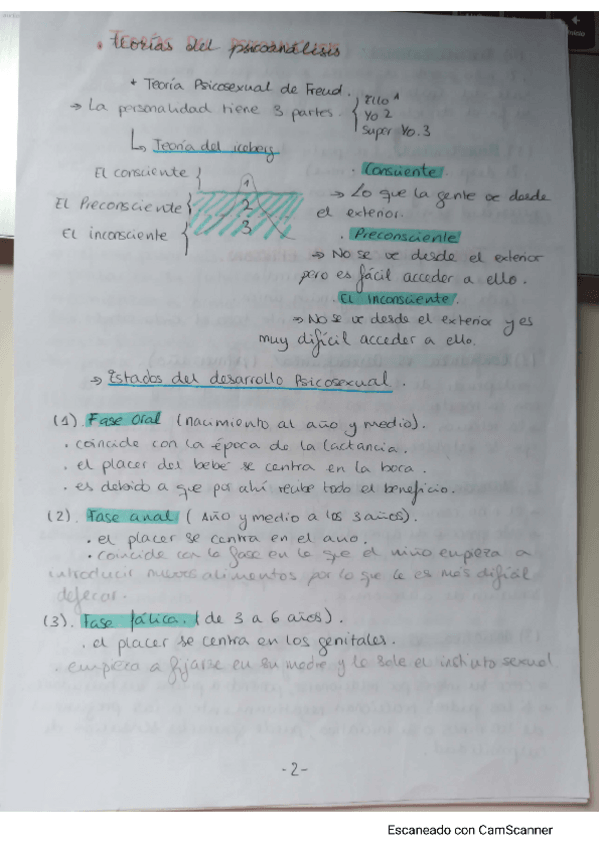 . Teorías del psicoanálisis
* Teoría Psicosexual de Freud.
→ La personalidad tiene 3 partes. { Ello 1
Yo 2
Super Yo. 3
↳ Teoría del iceberg
El consciente }
1
El Preconsciente {
2
El inconsciente {
3
. Consciente
→ Lo que la gente ve desde
el exterior.
. Preconsciente
→ No se ve desde el exterior
pero es fácil acceder a ello.
. El Inconsciente.
→ No se ve desde el exterior y es
muy difícil acceder a ello.
→ Estados del desarrollo Psicosexual.
(1). Fase oral (nacimiento al año y medio).
. coincide con la época de la lactancia.
. el placer del bebé se centra en la boca.
. es debido a que por ahí recibe todo el beneficio.
(2). Fase anal ( Año y medio a los 3 años).
. el placer se centra en el ano.
. coincide con la fase en la que el niño empieza a
introducir nuevos alimentos por lo que le es más difícil
defecar.
(3). Fase fálica. ( de 3 a 6 años).
. el placer se centra en los genitales.
. empieza a fijarse en su madre y le sale el instinto sexual.
-2-
Escaneado con CamScanner